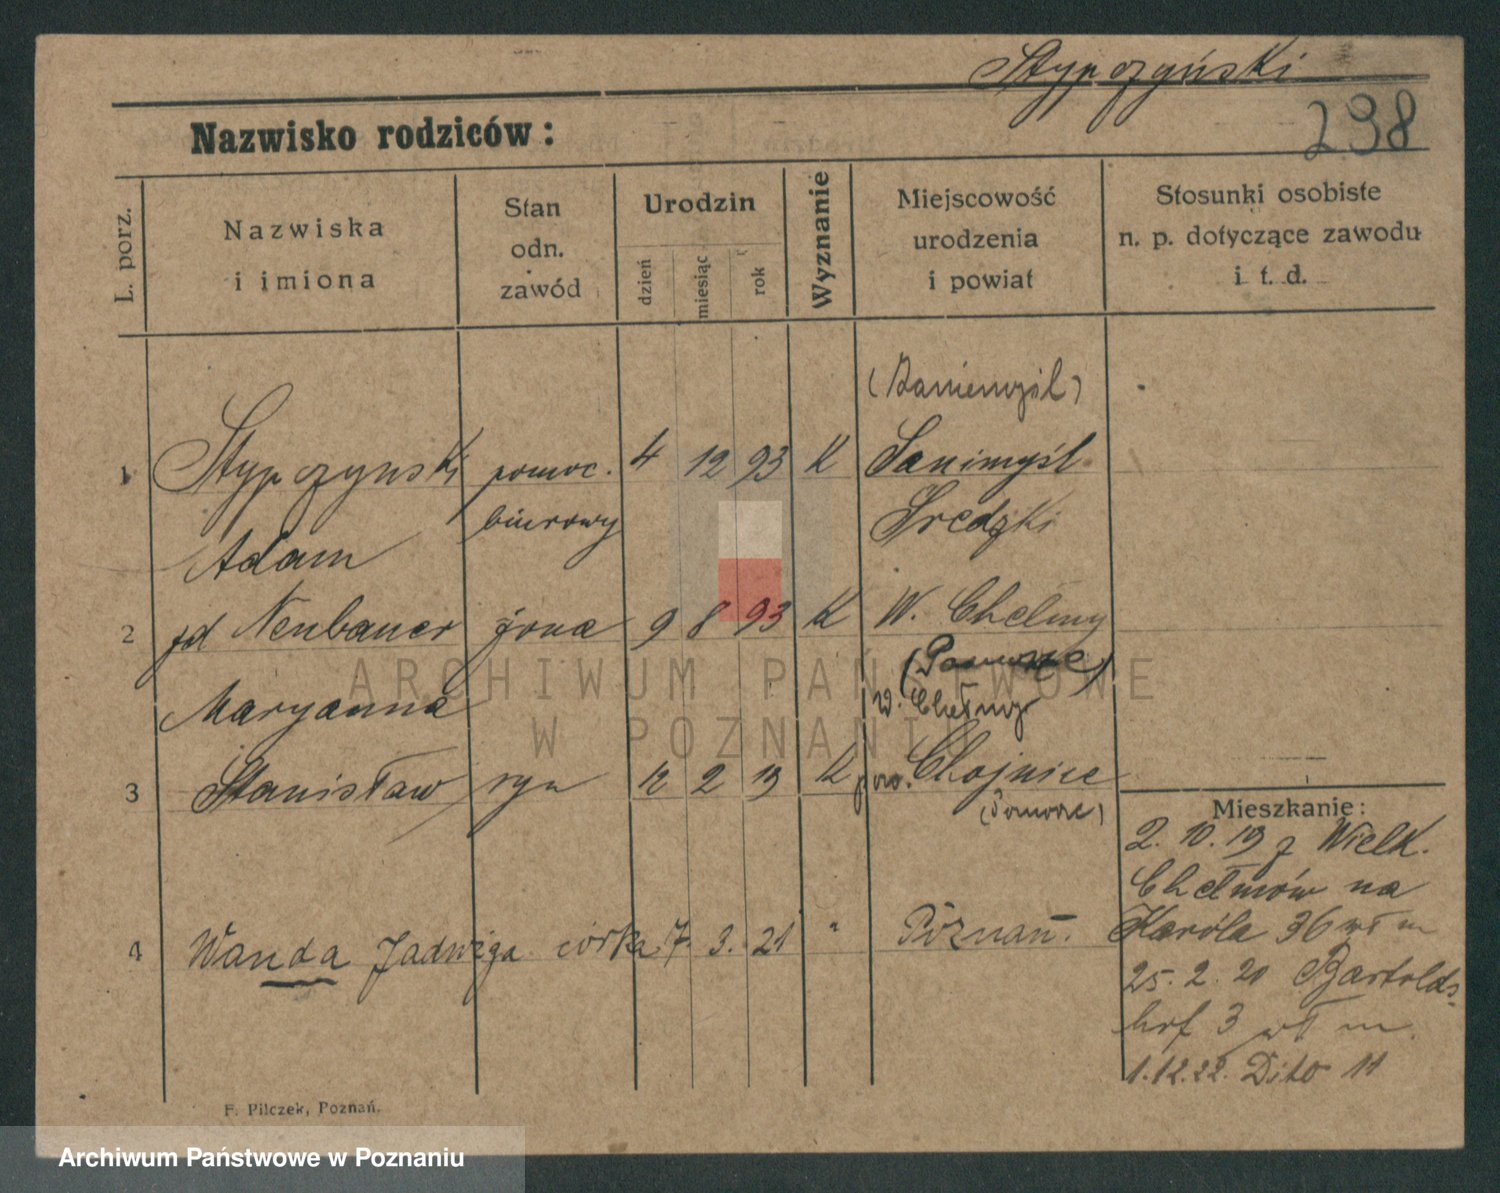 Stypczyński
298
Nazwisko rodziców:
L. porz.
Nazwiska
i imiona
Stan
odn.
zawód
Urodzin
dzień
miesiąc
rok
Wyznanie
Miejscowość
urodzenia
i powiat
Stosunki osobiste
n. p. dotyczące zawodu
i. t. d.
(Zaniemyśl)
1 Stypczynski pomoc. 4 12 93 K Sanimyśl
biurowy Sredzki
Adam
2 Neubauer żona 9 8 93 K W. Chelmy
(Pomorze)
Maryanna W. Chełmy
3 Stanisław syn 12 2 19 K pow. Chojnice
(Pomorze)
Mieszkanie:
2. 10. 19 z Wielk.
Chełmów na
Karóla 36 wł m
4 Wanda Jadwiga córka 7. 3. 21 " Poznań.
25. 2. 20 Bartolds-
hof 3 wł m.
1.12.22. Dito 11
F. Pilczek, Poznań.
ARCHIWUM PAŃSTWOWE
W POZNANIU
Archiwum Państwowe w Poznaniu